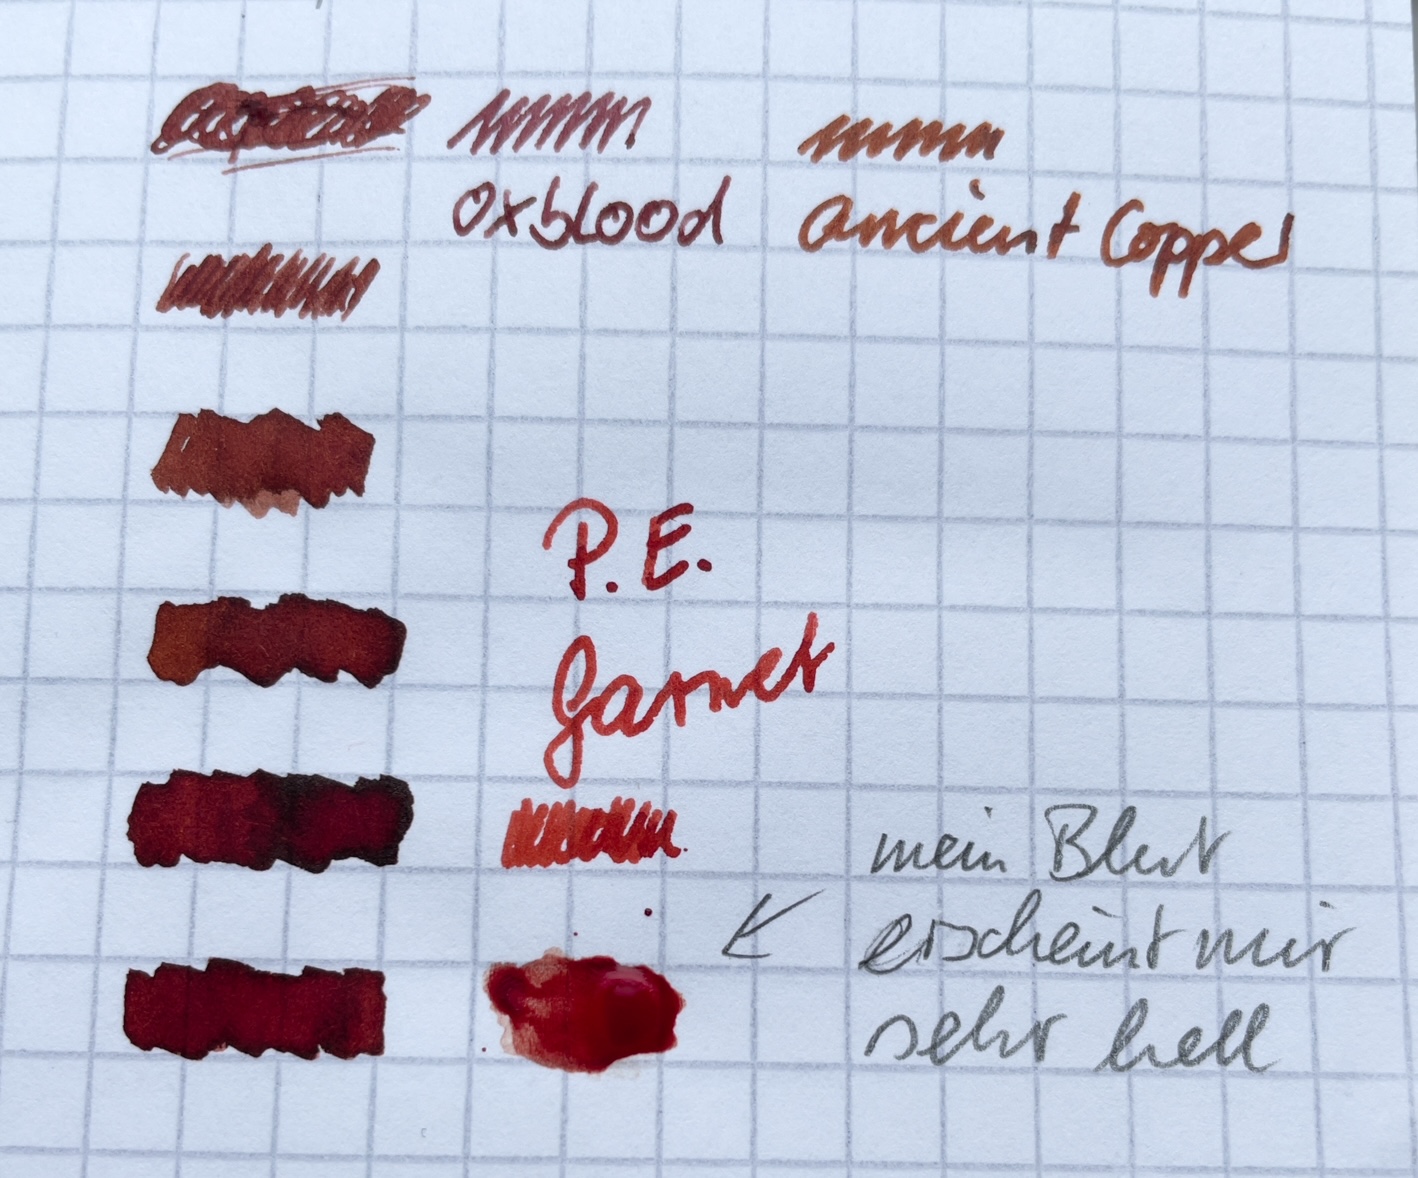 Oxblood
ancient Copper
P.E.
Garnet
mein Blut
erscheint mir
sehr hell